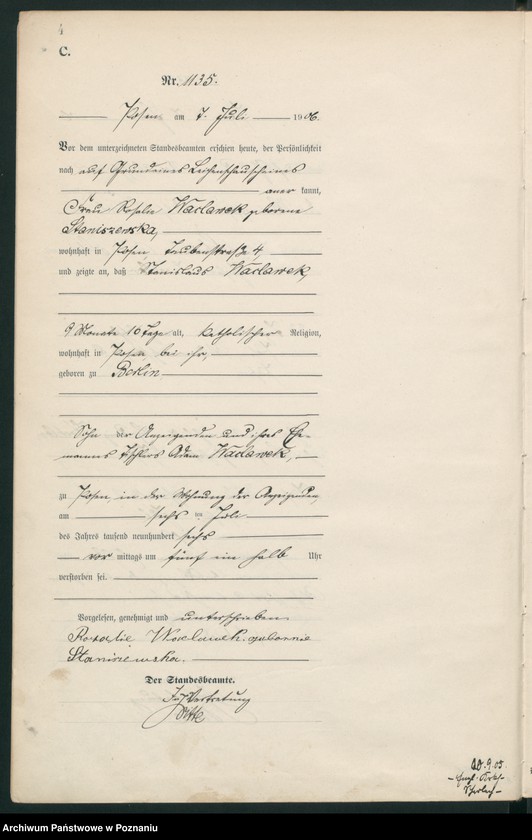 4
C.
Nr. 1135.
Posen am 7. Juli 1906.
Vor dem unterzeichneten Standesbeamten erschien heute, der Persönlichkeit
nach auf Grund eines Leichenschauscheines
aner kannt,
Frau Rosalie Waclawek geborene
Staniszewska,
wohnhaft in Posen, Taubenstraße 4,
und zeigte an, daß Stanislaus Waclawek,
9 Monate 10 Tage alt, katholischer Religion,
wohnhaft in Posen bei ihr,
geboren zu Berlin
Sohn der Anzeigenden und ihres Ehe-
mannes Tischlers Adam Waclawek,
zu Posen in der Wohnung der Anzeigenden,
am sechs ten Juli
des Jahres tausend neunhundert sechs
vor mittags um fünf ein halb Uhr
verstorben sei.
Vorgelesen, genehmigt und unterschrieben
Rozalie Woclawek. gebornie
Staniszewska.
Der Standesbeamte.
In Vertretung
Witte
9.05
Archiwum Państwowe w Poznaniu